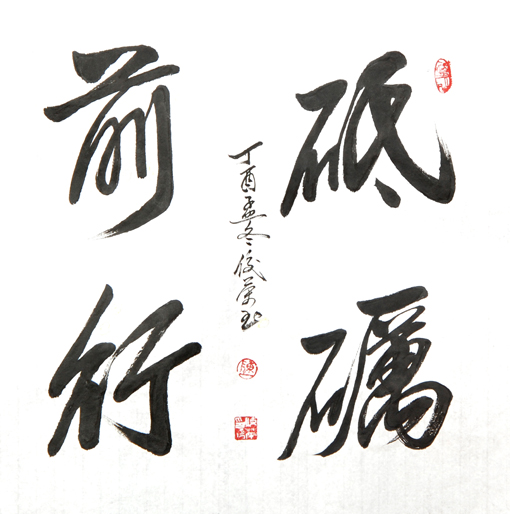 砥礪
前行
丁酉孟冬俊榮書